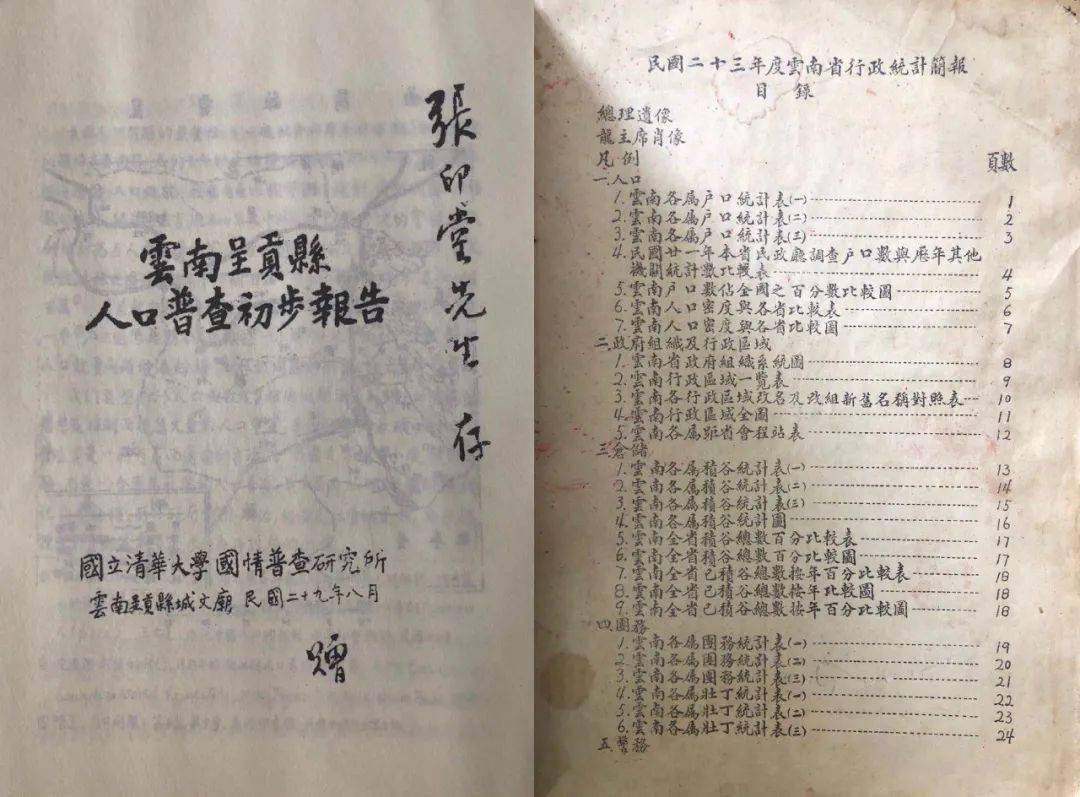 張印堂先生 存
雲南呈貢縣
人口普查初步報告
國立清華大學國情普查研究所
雲南呈貢縣城文廟 民國二十九年八月
贈
民國二十三年度雲南省行政統計簡報
目 錄
總理遺像
龍主席肖像
凡例
頁數
一.人口
1.雲南各属户口統計表(一)----------1
2.雲南各属户口統計表(二)----------2
3.雲南各属户口統計表(三)----------3
4.民國廿一年本省民政廳調查户口數與歷年其他
機關統計數比較表----------4
5.雲南户口數佔全國之百分數比較圖----------5
6.雲南人口密度與各省比較表----------6
7.雲南人口密度與各省比較圖----------7
二.政府組織及行政區域
1.雲南省政府組織系統圖----------8
2.雲南行政區域一覽表----------9
3.雲南各行政區域改名及改組新舊名稱對照表----------10
4.雲南行政區域全圖----------11
5.雲南各属距省會程站表----------12
三.倉儲
1.雲南各属積谷統計表(一)----------13
2.雲南各属積谷統計表(二)----------14
3.雲南各属積谷統計表(三)----------15
4.雲南各属積谷統計圖----------16
5.雲南全省積谷總數百分比較表----------17
6.雲南全省積谷總數百分比較圖----------17
7.雲南全省已積谷總數按年百分比較表----------18
8.雲南全省已積谷總數按年比較圖----------18
9.雲南全省已積谷總數按年百分比較圖----------18
四.團務
1.雲南各属團務統計表(一)----------19
2.雲南各属團務統計表(二)----------20
3.雲南各属團務統計表(三)----------21
4.雲南各属壯丁統計表(一)----------22
5.雲南各属壯丁統計表(二)----------23
6.雲南各属壯丁統計表(三)----------24
五.警務